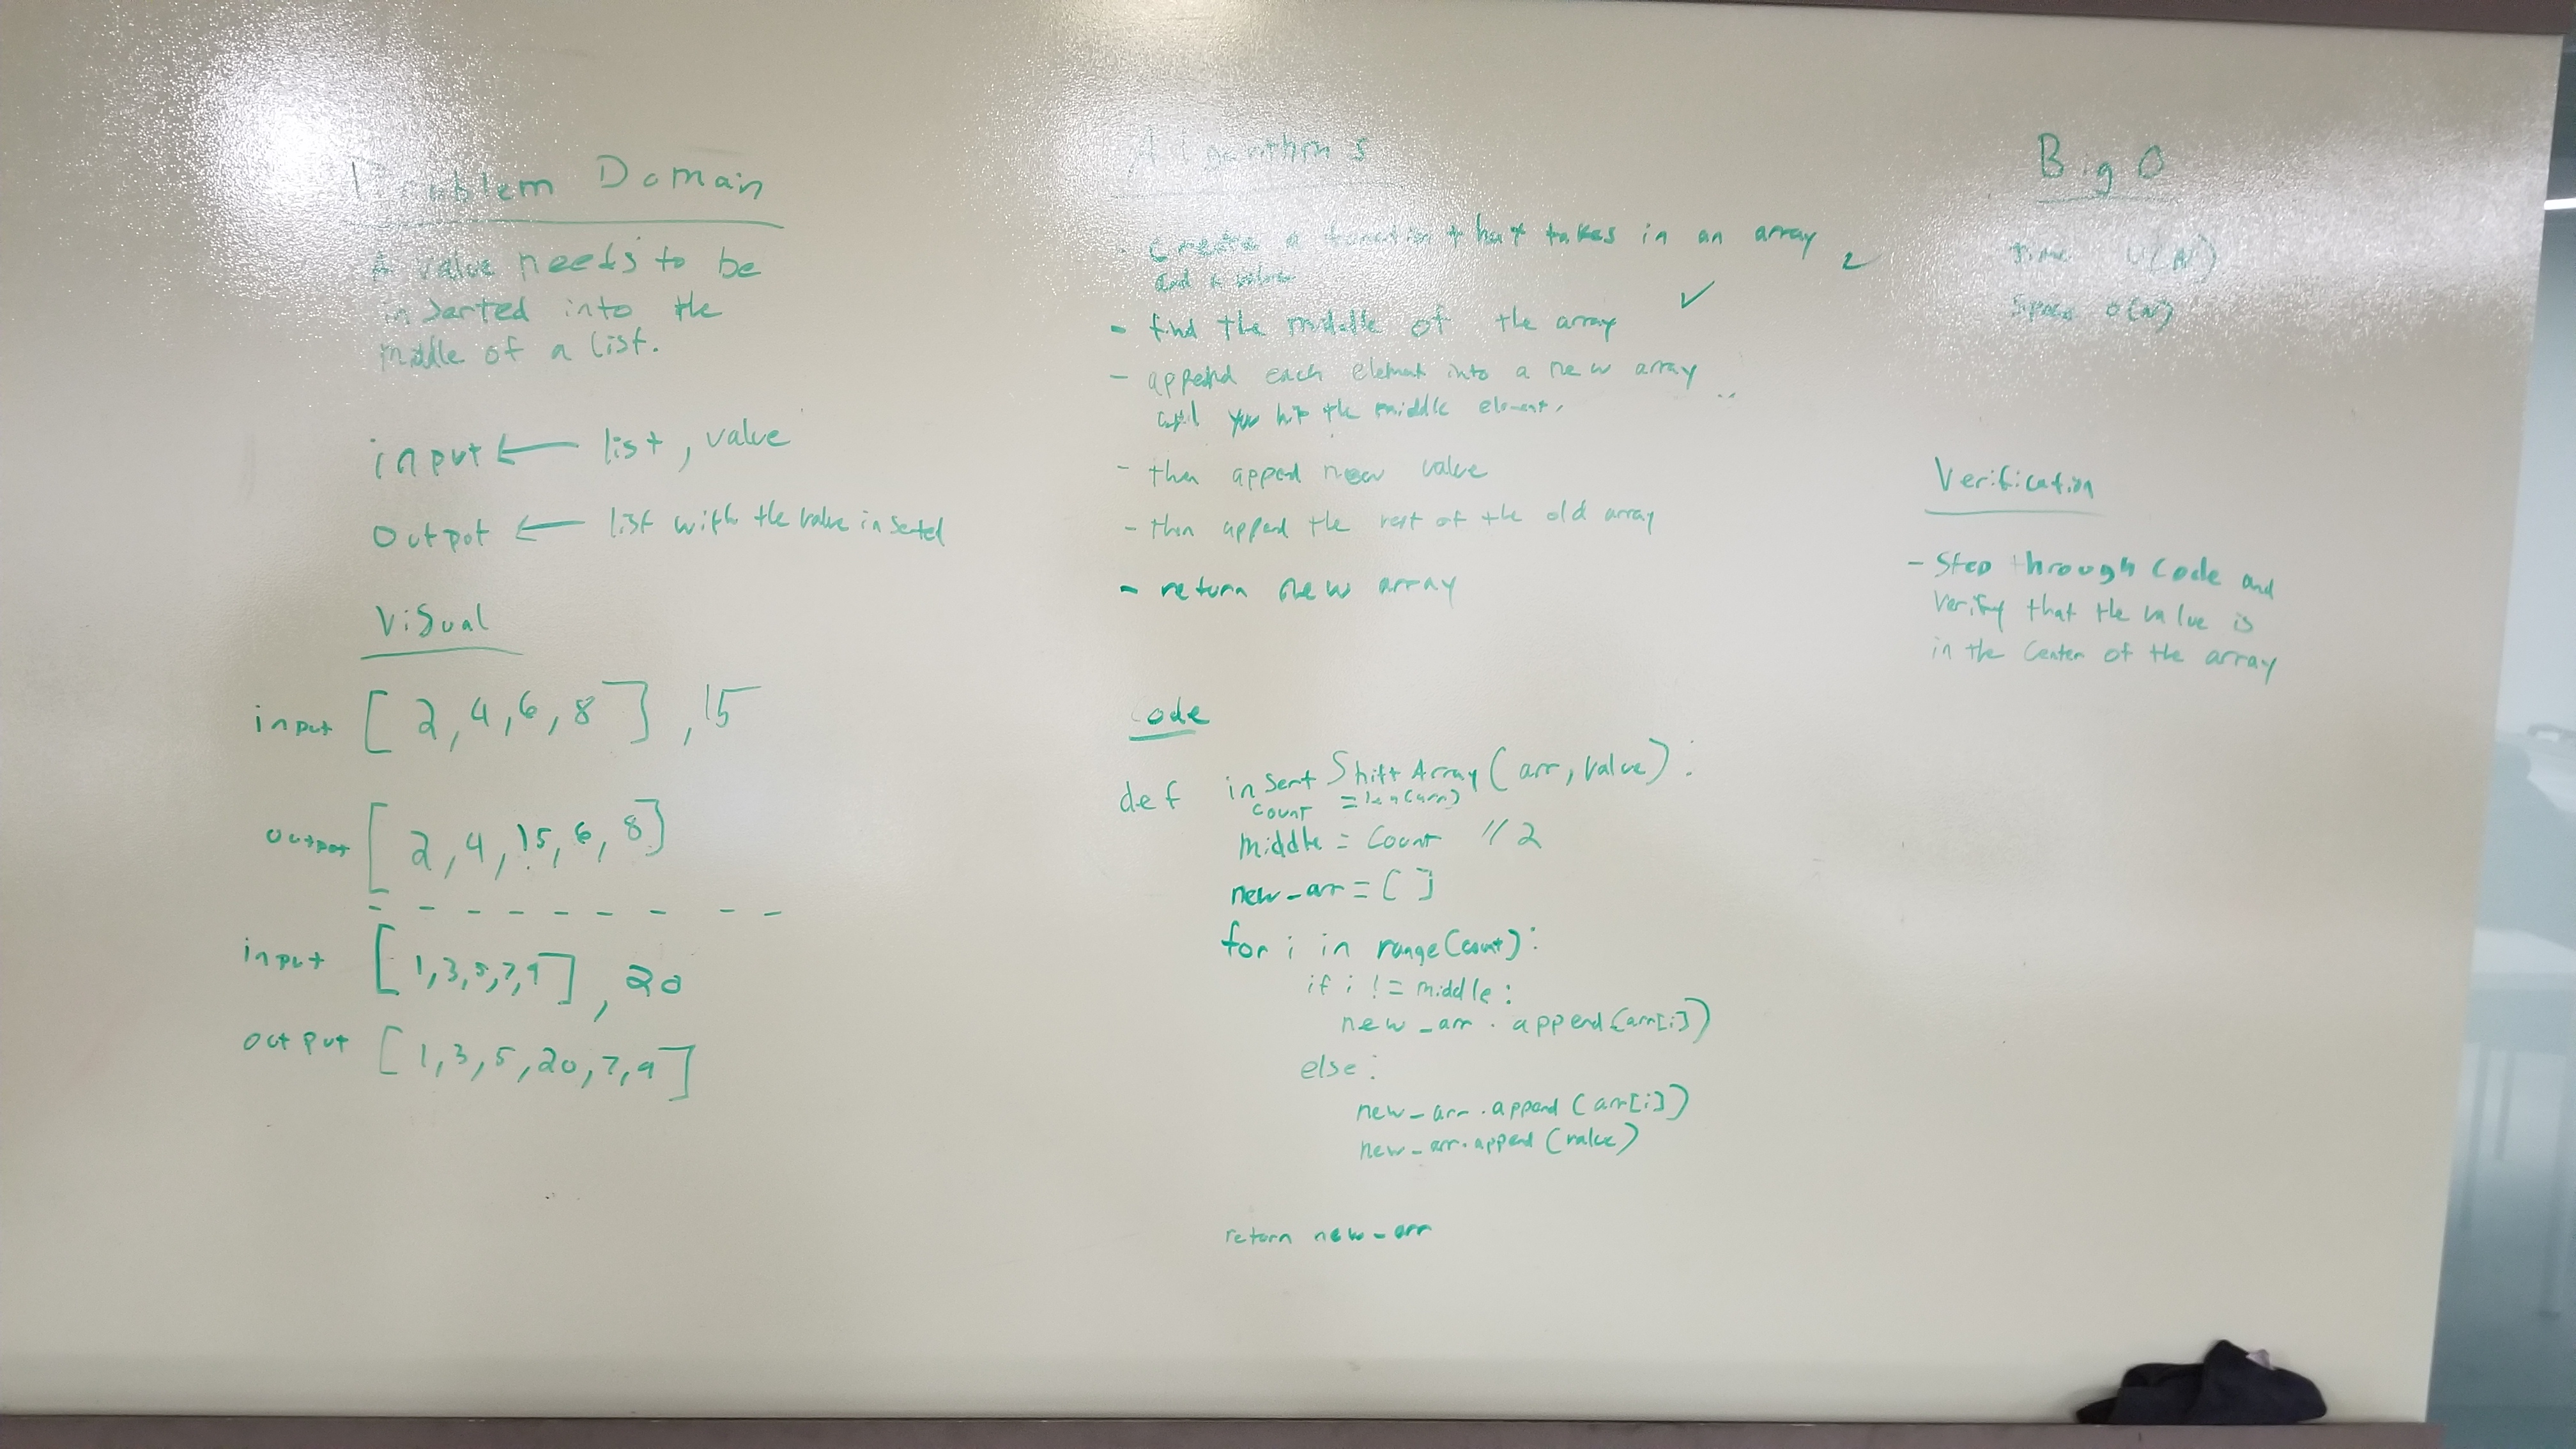 Problem Domain
A value needs to be
inserted into the
middle of a list.
input ← list, value
Output ← list with the value inserted
Visual
input [ 2, 4, 6, 8 ] , 15
output [ 2, 4, 15, 6, 8 ]
- - - - - - - - -
input [ 1, 3, 5, 7, 9 ] , 20
output [ 1, 3, 5, 20, 7, 9 ]
Algorithms
- Create a function that takes in an array
and a value
- find the middle of the array ✓
- append each element into a new array
until you hit the middle element.
- then append new value
- then append the rest of the old array
- return new array
Code
def insertShiftArray(arr, value):
count = len(arr)
middle = count // 2
new_arr = [ ]
for i in range(count):
if i != middle:
new_arr.append(arr[i])
else:
new_arr.append(arr[i])
new_arr.append(value)
return new_arr
Big O
Time O(N)
Space O(N)
Verification
- Step through Code and
Verify that the value is
in the Center of the array